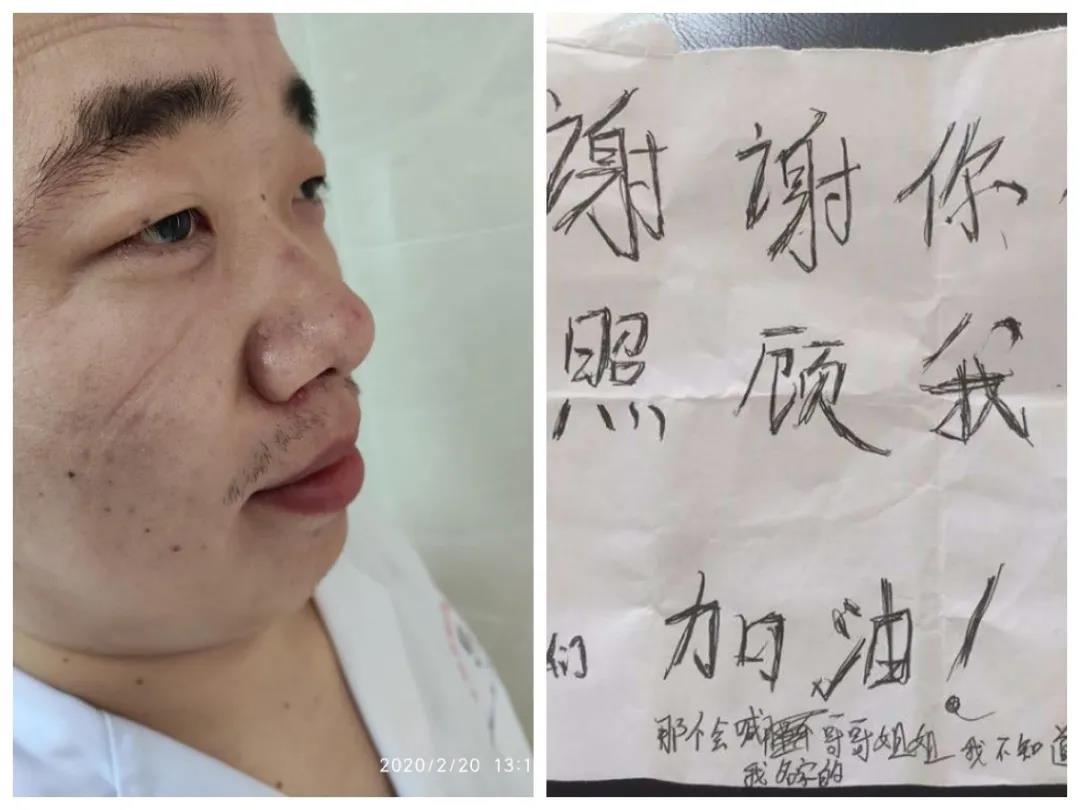 2020/2/20 13:1
谢谢你
照顾我
们 加油！
那个会喊 哥哥姐姐 我不知道
我名字的